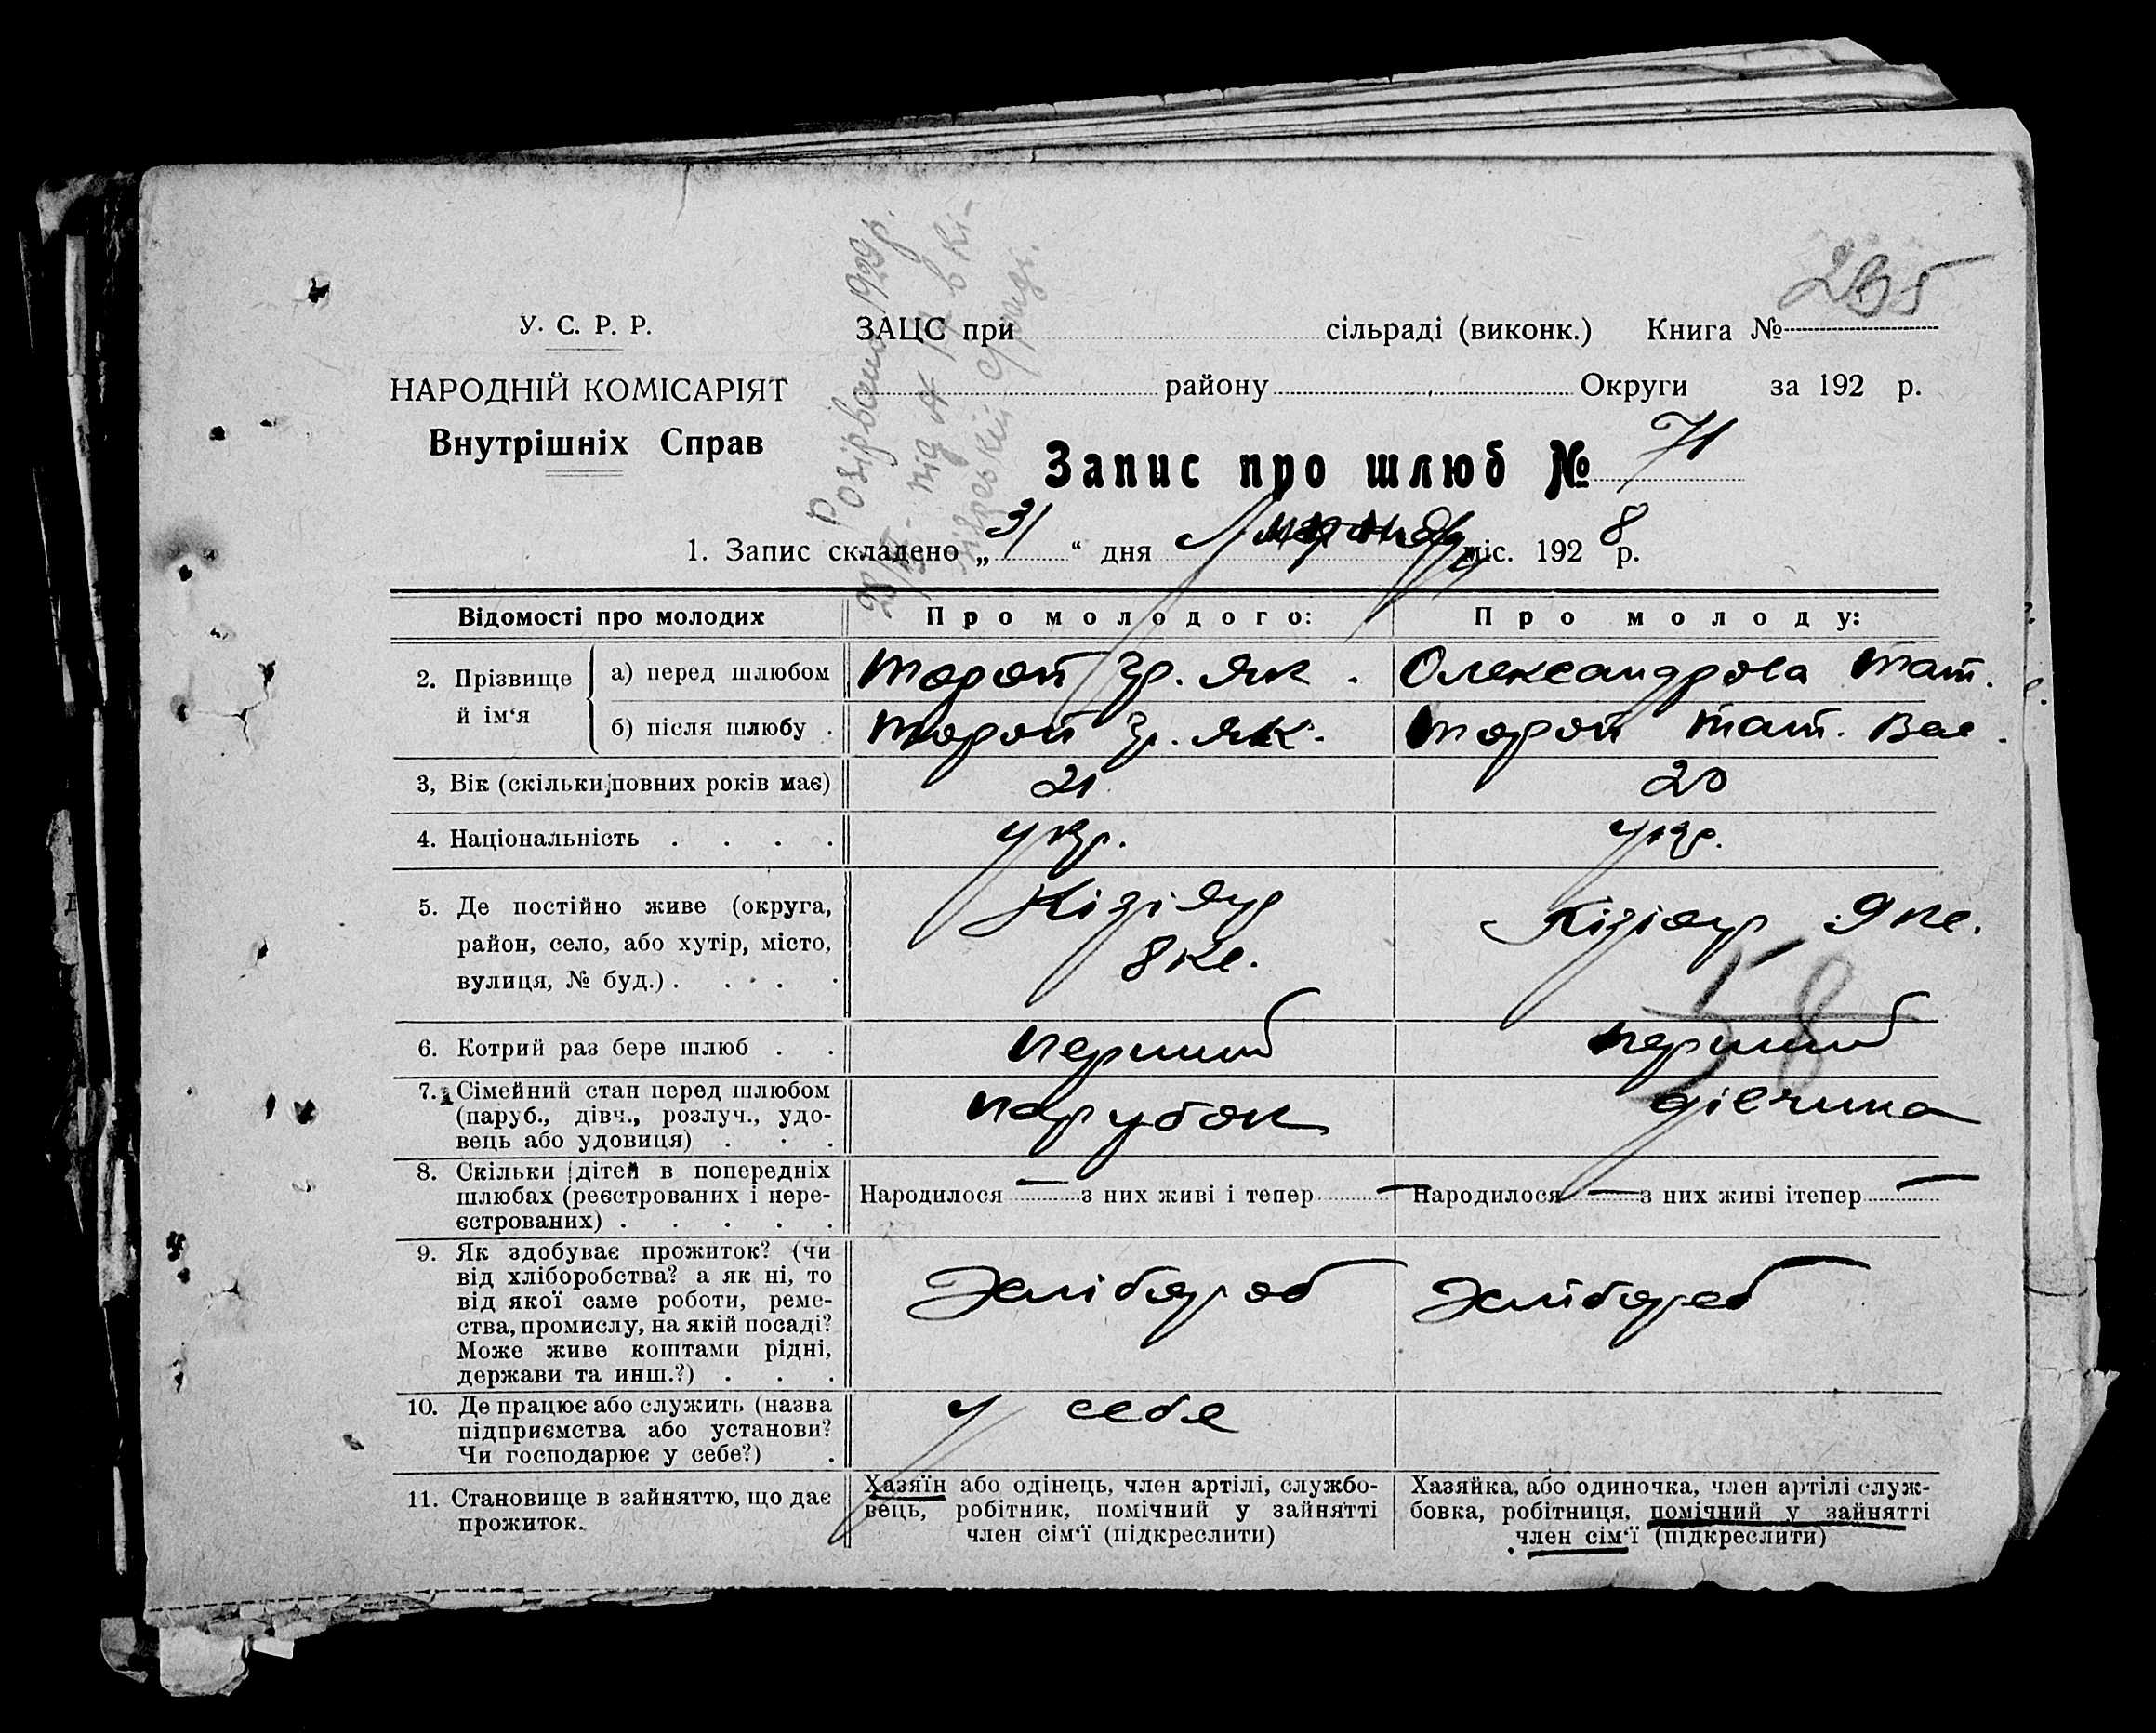 295
У. С. Р. Р.
НАРОДНІЙ КОМІСАРІЯТ
Внутрішніх Справ
ЗАЦС при сільраді (виконк.) Книга №
району Округи за 192 р.
Запис про шлюб № 71
Розірвано 1929 р.
1. Запис складено „31“ дня міс. 1928 р.
Відомості про молодих
Про молодого:
Про молоду:
2. Прізвище й ім‘я
а) перед шлюбом
Торой Гр. Як.
Олександрова Тат.
б) після шлюбу .
Торой Гр. Як.
Торой Тат. Вас.
3, Вік (скільки повних років має)
21
20
4. Національність . . . .
укр.
укр.
5. Де постійно живе (округа,
район, село, або хутір, місто,
вулиця, № буд.) . . . . .
Кізіяр
8 кв.
Кізіяр 9 кв.
58
6. Котрий раз бере шлюб . .
перший
перший
7. Сімейний стан перед шлюбом
(паруб., дівч., розлуч., удо-
вець або удовиця) . . .
парубок
дівчина
8. Скільки дітей в попередніх
шлюбах (реєстрованих і нере-
єстрованих) . . . . .
Народилося — з них живі і тепер —
Народилося — з них живі ітепер —
9. Як здобуває прожиток? (чи
від хліборобства? а як ні, то
від якої саме роботи, реме-
ства, промислу, на якій посаді?
Може живе коштами рідні,
держави та инш.?) . . .
Хлібороб
Хлібороб
10. Де працює або служить (назва
підприємства або установи?
Чи господарює у себе?) .
у себе
11. Становище в зайняттю, що дає
прожиток.
Хазяїн або одінець, член артілі, службо-
вець, робітник, помічний у зайнятті
член сім‘ї (підкреслити)
Хазяйка, або одиночка, член артілі служ-
бовка, робітниця, помічний у зайнятті
член сім‘ї (підкреслити)